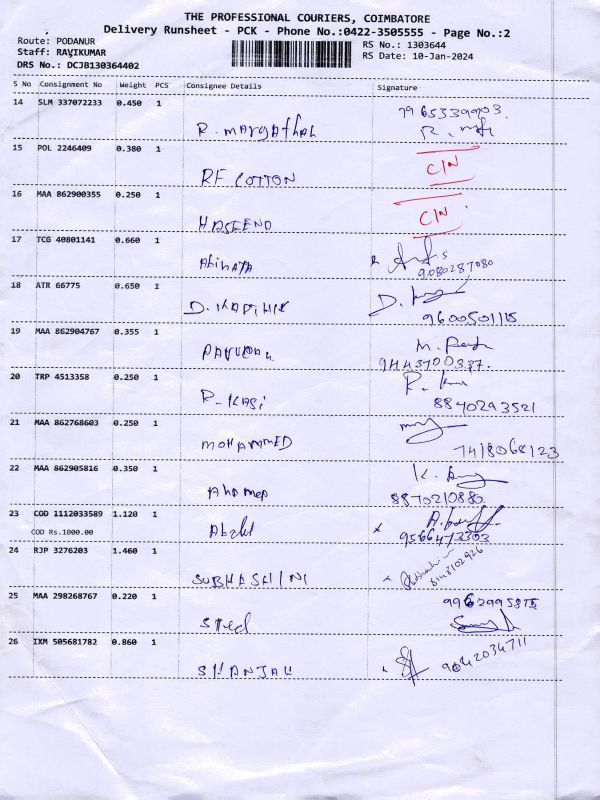 THE PROFESSIONAL COURIERS, COIMBATORE
Delivery Runsheet - PCK - Phone No.:0422-3505555 - Page No.:2
Route: PODANUR
RS No.: 1303644
Staff: RAVIKUMAR
RS Date: 10-Jan-2024
DRS No.: DCJB130364402
S No Consignment No Weight PCS Consignee Details Signature
14 SLM 337072233 0.450 1
R. margathal
15 POL 2246409 0.380 1
C/N
RF COTTON
16 MAA 862900355 0.250 1
C/N
17 TCG 40801141 0.660 1
9080287080
18 ATR 66775 0.650 1
D.
9600501115
19 MAA 862904767 0.355 1
M.
9443700337.
20 TRP 4513358 0.250 1
R. KASi
8840293521
21 MAA 862768603 0.250 1
MOHAMMED
7418068123
22 MAA 862905816 0.350 1
K.
Ahamed
8870210880
23 COD 1112033589 1.120 1
COD Rs.1000.00
9566473303
24 RJP 3276203 1.460 1
8148102926
SUBHASHINI
25 MAA 298268767 0.220 1
Syed
26 IXM 505681782 0.860 1
9042034711